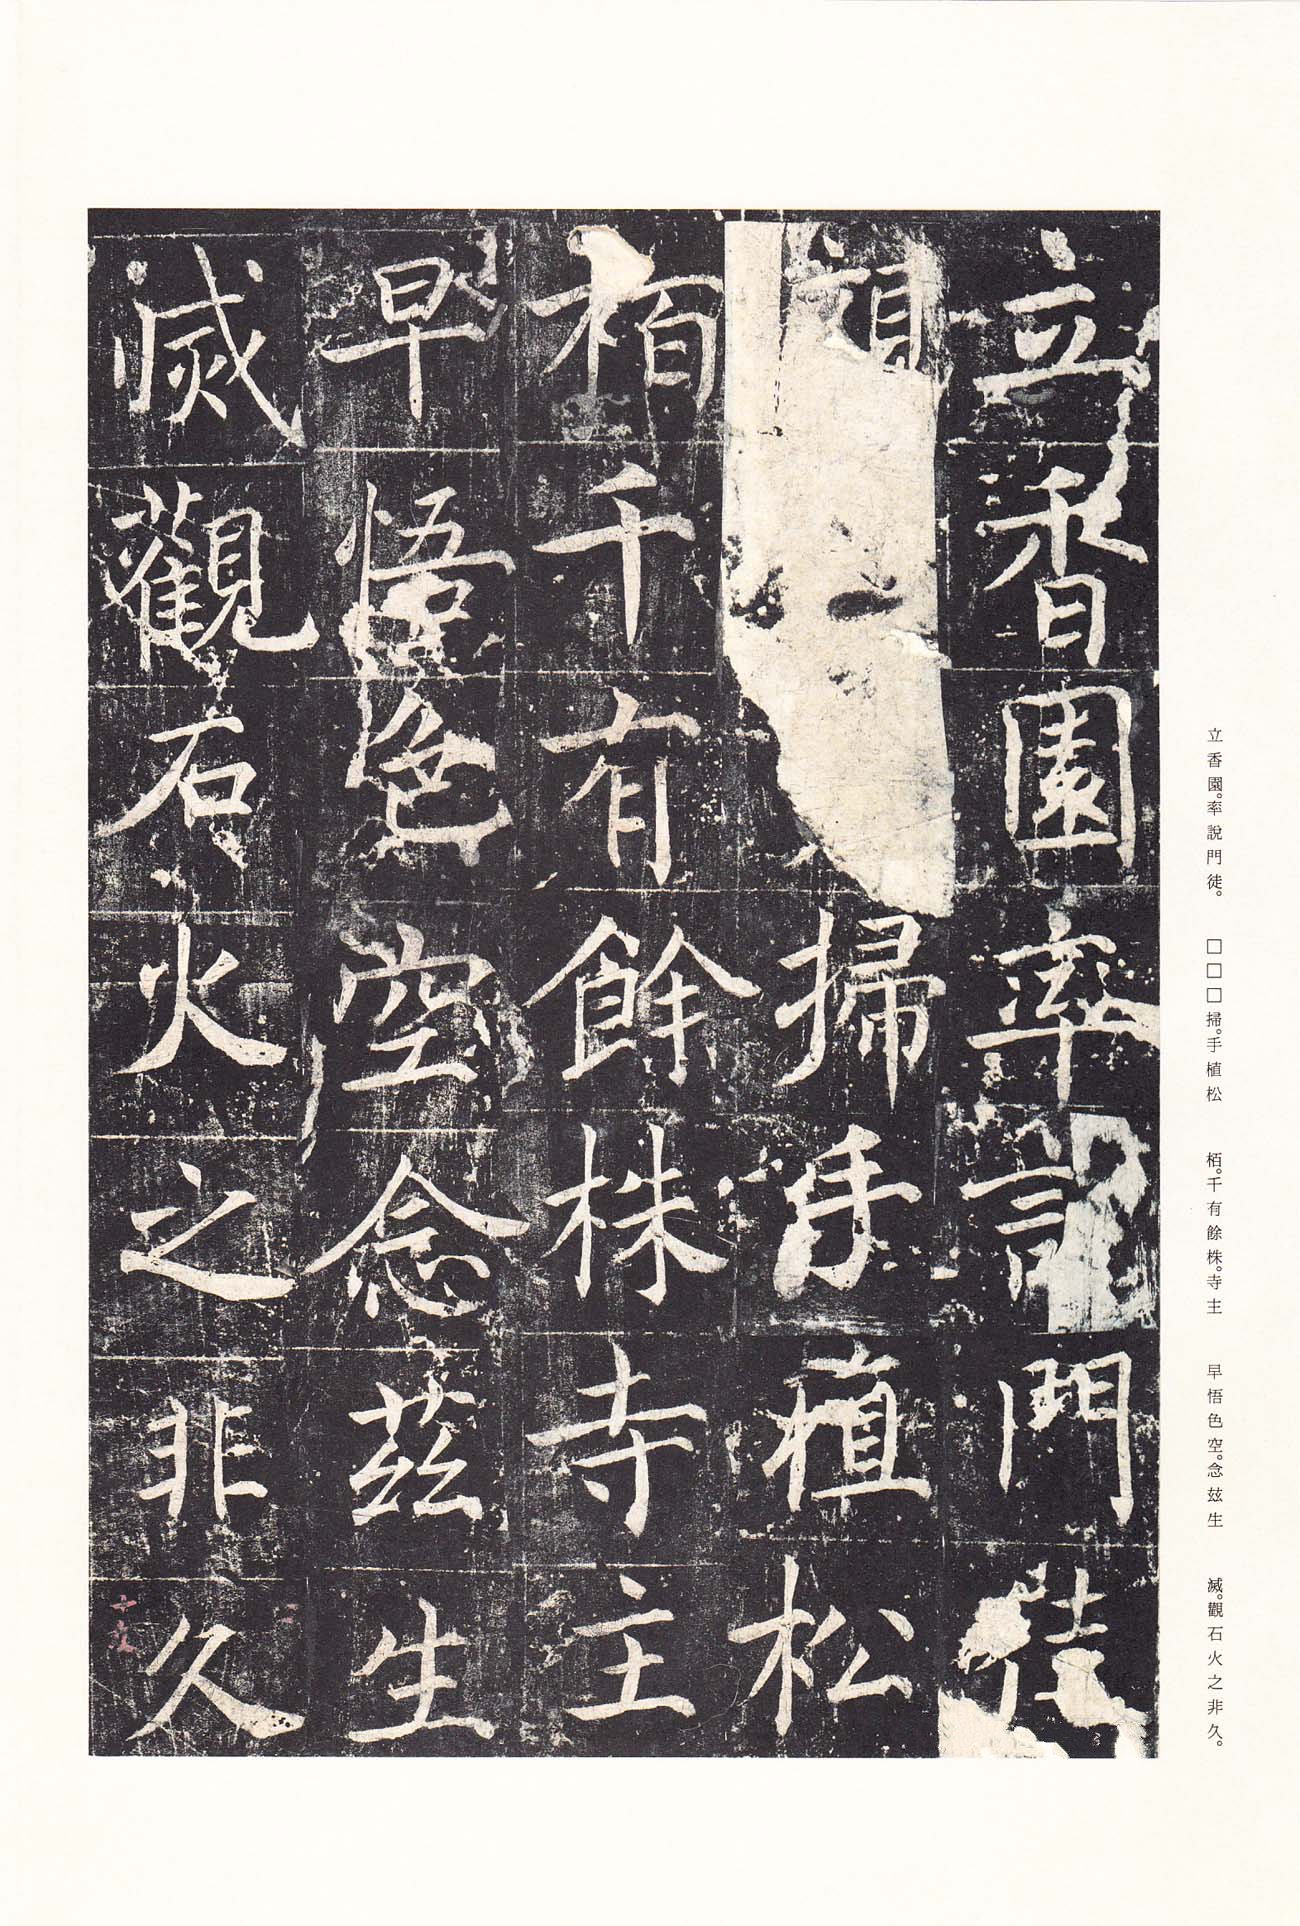 立香園率說門徒
掃手植松
栢千有餘株寺主
早悟色空念茲生
滅觀石火之非久
立香園。率說門徒。　□□□掃。手植松　栢。千有餘株。寺主　早悟色空。念玆生　滅。觀石火之非久。